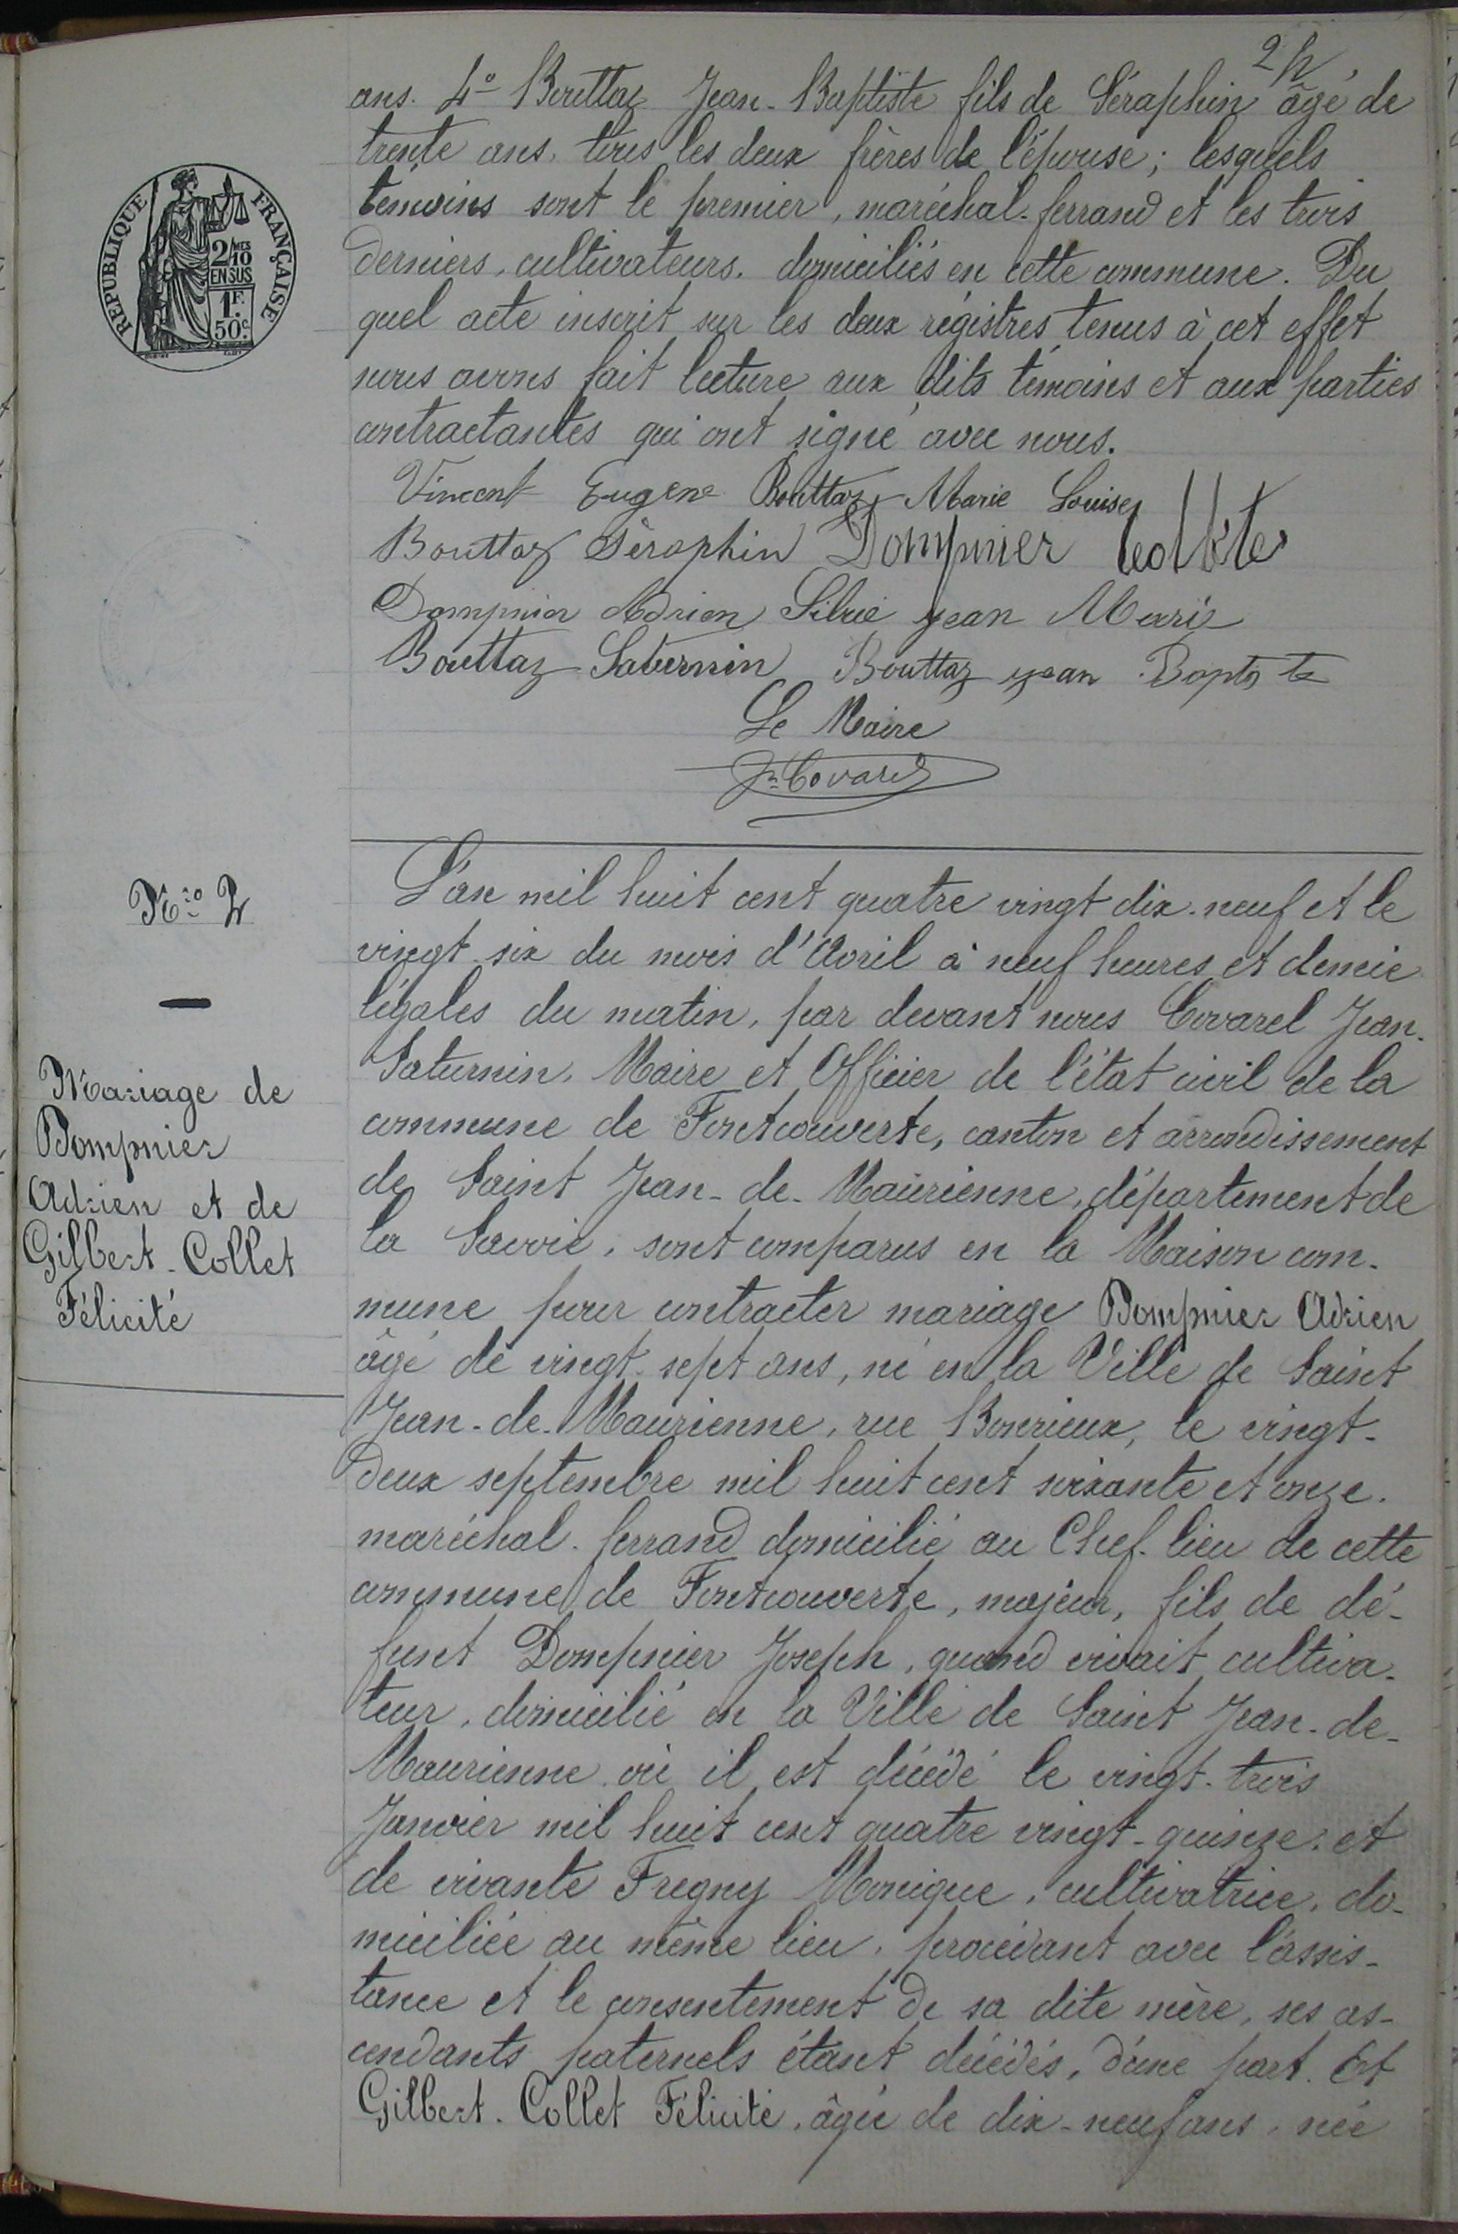 ans. 4° Bouttaz Jean-Baptiste fils de Séraphin âgé de
trente ans, tous les deux frères de l'épouse; lesquels
témoins sont le premier, maréchal-ferrand et les trois
derniers, cultivateurs, domiciliés en cette commune. Du
quel acte inscrit sur les deux régistres tenus à cet effet
nous avons fait lecture aux dits témoins et aux parties
contractantes qui ont signé avec nous.
Vincent Eugène Bouttaz Marie Louise
Bouttaz Séraphin Dompnier
Dompnier Adrien Silvie Jean Marie
Bouttaz Saturnin Bouttaz Jean Baptste
Le Maire
Jn Covarel
REPUBLIQUE FRANÇAISE
2/10 MES
EN SUS
1F.
50c.
Nro 2
Mariage de
Dompnier
Adrien et de
Gilbert-Collet
Félicité
L'an mil huit cent quatre vingt dix-neuf et le
vingt-six du mois d'Avril à neuf heures et demie
légales du matin, par devant nous Covarel Jean-
Saturnin, Maire et Officier de l'état civil de la
commune de Fontcouverte, canton et arrondissement
de Saint Jean-de-Maurienne, département de
la Savoie, sont comparus en la Maison com-
mune pour contracter mariage Dompnier Adrien
âgé de vingt-sept ans, né en la Ville de Saint
Jean-de-Maurienne, rue Bonrieux, le vingt-
deux septembre mil huit cent soixante et onze,
maréchal-ferrand domicilié au Chef-lieu de cette
commune de Fontcouverte, majeur, fils de dé-
funt Dompnier Joseph, quand vivait cultiva-
teur, domicilié en la Ville de Saint Jean-de-
Maurienne où il est décédé le vingt-trois
Janvier mil huit cent quatre vingt-quinze, et
de vivante Fregny Monique, cultivatrice, do-
miciliée au même lieu, procédant avec l'assis-
tance et le consentement de sa dite mère, ses as-
cendants paternels étant décédés, d'une part. Et
Gilbert-Collet Félicité, âgée de dix-neuf ans, née